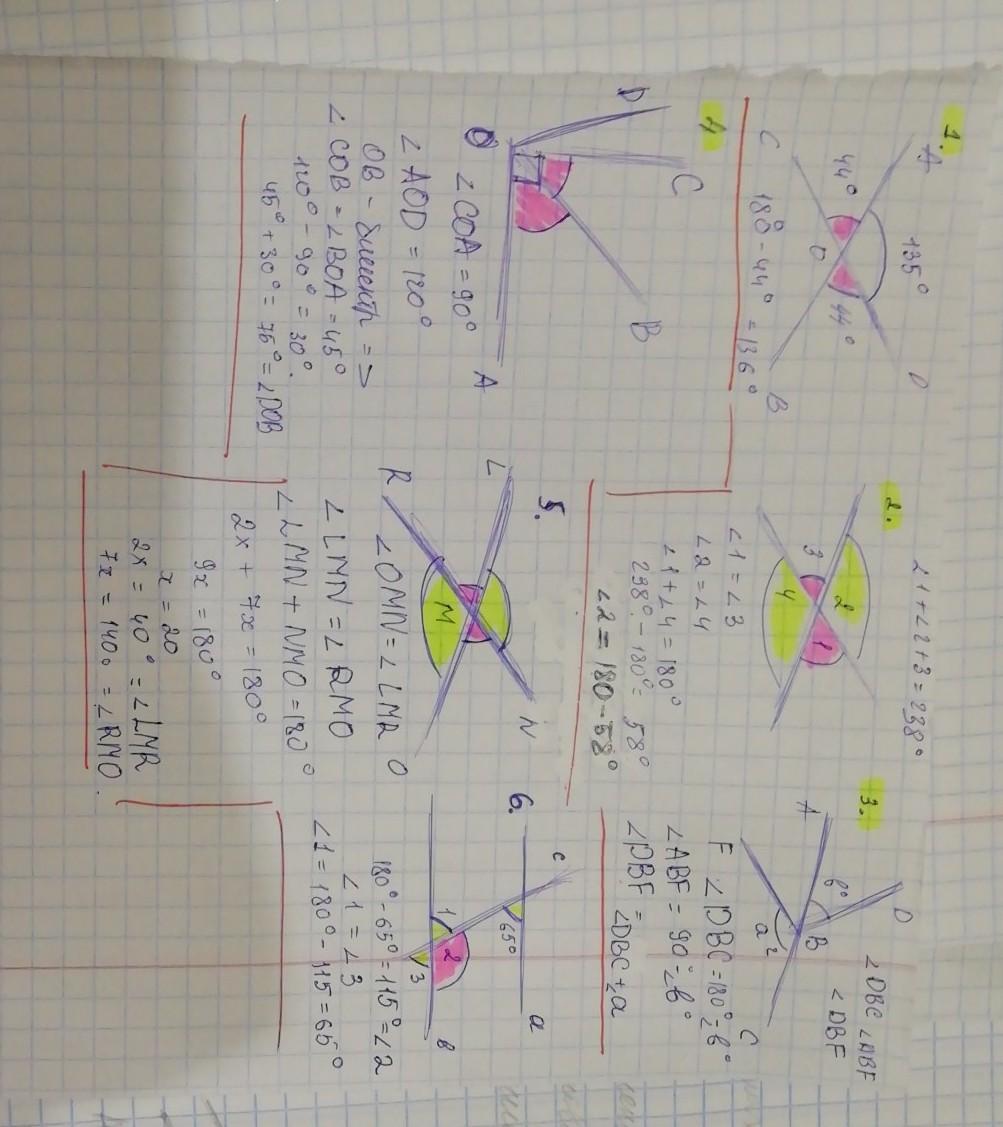 1.
A
135°
D
44°
O
44°
C
B
180° - 44° = 136°
2.
∠1+∠2+3=238°
2
3
1
4
∠1=∠3
∠2=∠4
∠1+∠4=180°
238° - 180° = 58°
∠2=180-58°
3.
∠DBC ∠ABF
∠DBF
D
A
B
C
F
∠DBC=180°-∠
∠ABF= 90°-∠
∠DBF = ∠DBC+∠a
4
D
C
B
O
A
∠COA=90°
∠AOD=120°
OB - биссектр =>
∠COB=∠BOA=45°
120° - 90° = 30°
45°+30°=75°=∠DOB
5.
L
N
M
R
O
∠OMN=∠LMR
∠LMN=∠RMO
∠LMN+NMO=180°
2x+7x=180°
9x=180°
x=20
2x=40°=∠LMR
7x=140°=∠RMO.
6.
c
a
65°
1
2
3
в
180°-65°=115°=∠2
∠1=∠3
∠1=180°-115=65°